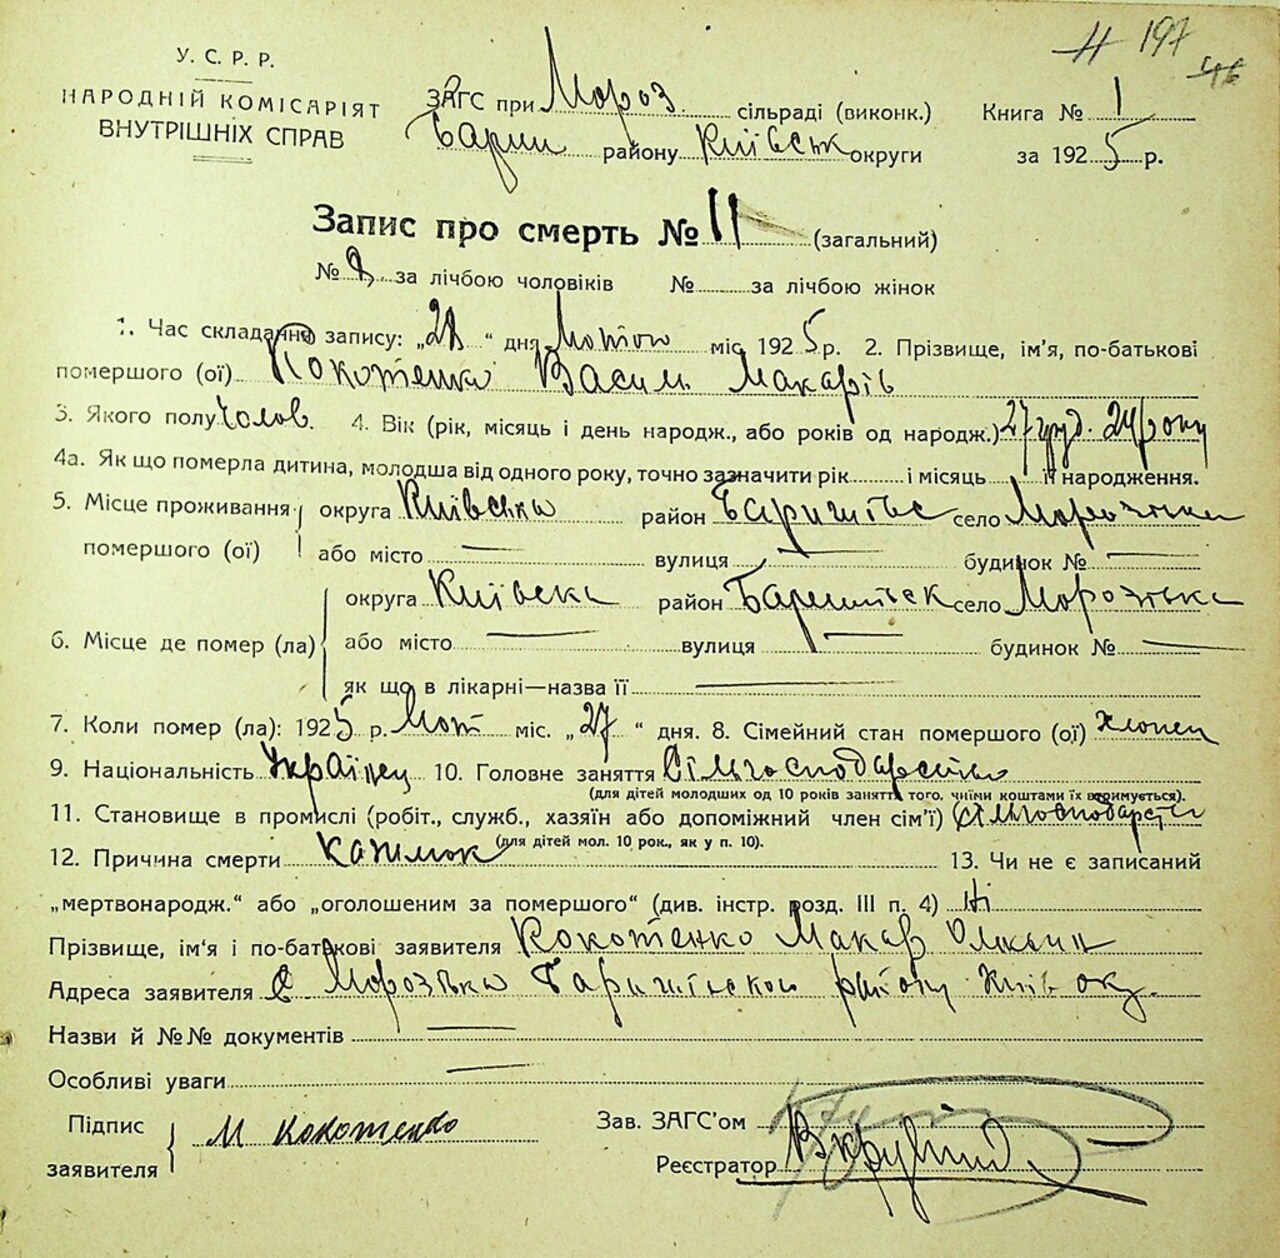 197
У. С. Р. Р.
НАРОДНІЙ КОМІСАРІЯТ
ВНУТРІШНІХ СПРАВ
ЗАГС при Мороз. сільраді (виконк.)
Бариш району Київськ округи
Книга № 1
за 1925 р.
Запис про смерть № 11 (загальний)
№ 8 за лічбою чоловіків № за лічбою жінок
1. Час складання запису: „28“ дня Лютого міс 1925 р. 2. Прізвище, ім'я, по-батькові
помершого (ої) Кокотенко Василь Макарів
3. Якого полу Чолов. 4. Вік (рік, місяць і день народж., або років од народж.) 27 груд. 24 року
4а. Як що померла дитина, молодша від одного року, точно зазначити рік і місяць її народження.
5. Місце проживання округа Київська район Баришівс село Морозівка
помершого (ої) або місто — вулиця — будинок № —
округа Київска район Баришівск село Морозівка
6. Місце де помер (ла) або місто — вулиця — будинок № —
як що в лікарні—назва її —
7. Коли помер (ла): 1925 р. Лют міс. „27“ дня. 8. Сімейний стан помершого (ої) хлопец
9. Національність Українец 10. Головне заняття Сільгосподарство
(для дітей молодших од 10 років заняття того, чиїми коштами їх утримується).
11. Становище в промислі (робіт., служб., хазяїн або допоміжний член сім'ї)
(для дітей мол. 10 рок., як у п. 10).
12. Причина смерти Кашлюк 13. Чи не є записаний
„мертвонародж.“ або „оголошеним за помершого“ (див. інстр. розд. III п. 4) Ні
Прізвище, ім'я і по-батькові заявителя Кокотенко Макар
Адреса заявителя С. Морозівка Баришівского району Київ окр.
Назви й №№ документів —
Особливі уваги —
Підпис
заявителя М Кокотенко
Зав. ЗАГС'ом
Реєстратор